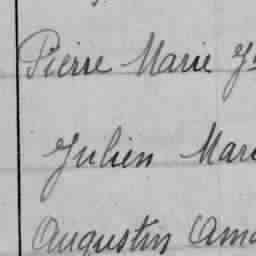 Pierre Marie
Julien Mar
Augustin Am